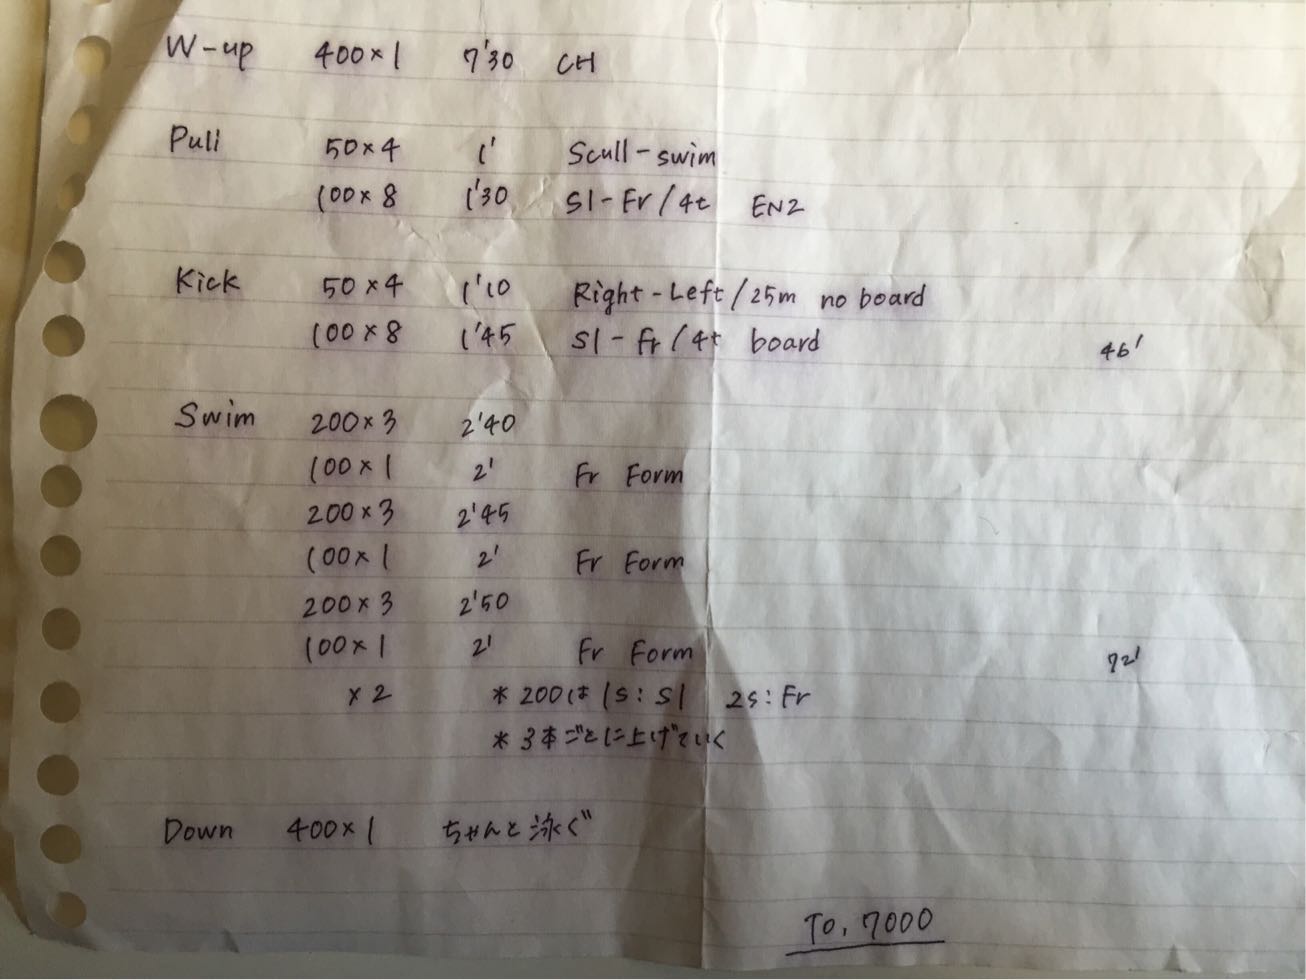 W-up 400×1 7'30 CH
Pull 50×4 1' Scull-swim
100×8 1'30 S1-Fr/4t EN2
Kick 50×4 1'10 Right-Left/25m no board
100×8 1'45 S1-Fr/4t board 46'
Swim 200×3 2'40
100×1 2' Fr Form
200×3 2'45
100×1 2' Fr Form
200×3 2'50
100×1 2' Fr Form 72'
×2 * 200は1s:S1 2s:Fr
* 3本ごとに上げていく
Down 400×1 ちゃんと泳ぐ
To. 7000